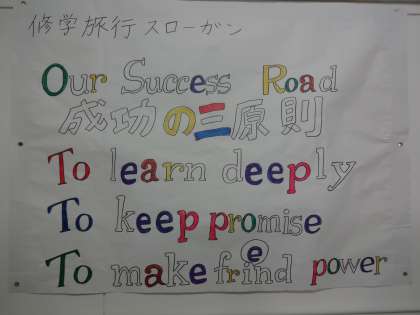 修学旅行スローガン
Our Success Road
成功の三原則
To learn deeply
To keep promise
To make friend power